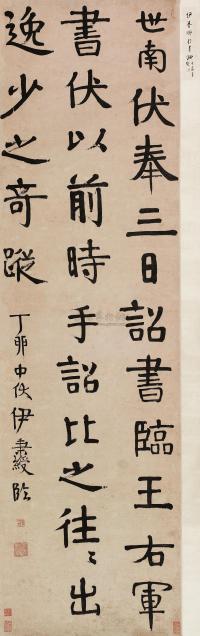 世南伏奉三日詔書臨王右軍
書伏以前時手詔比之往〻出
逸少之奇蹤
丁卯中伏伊秉綬臨